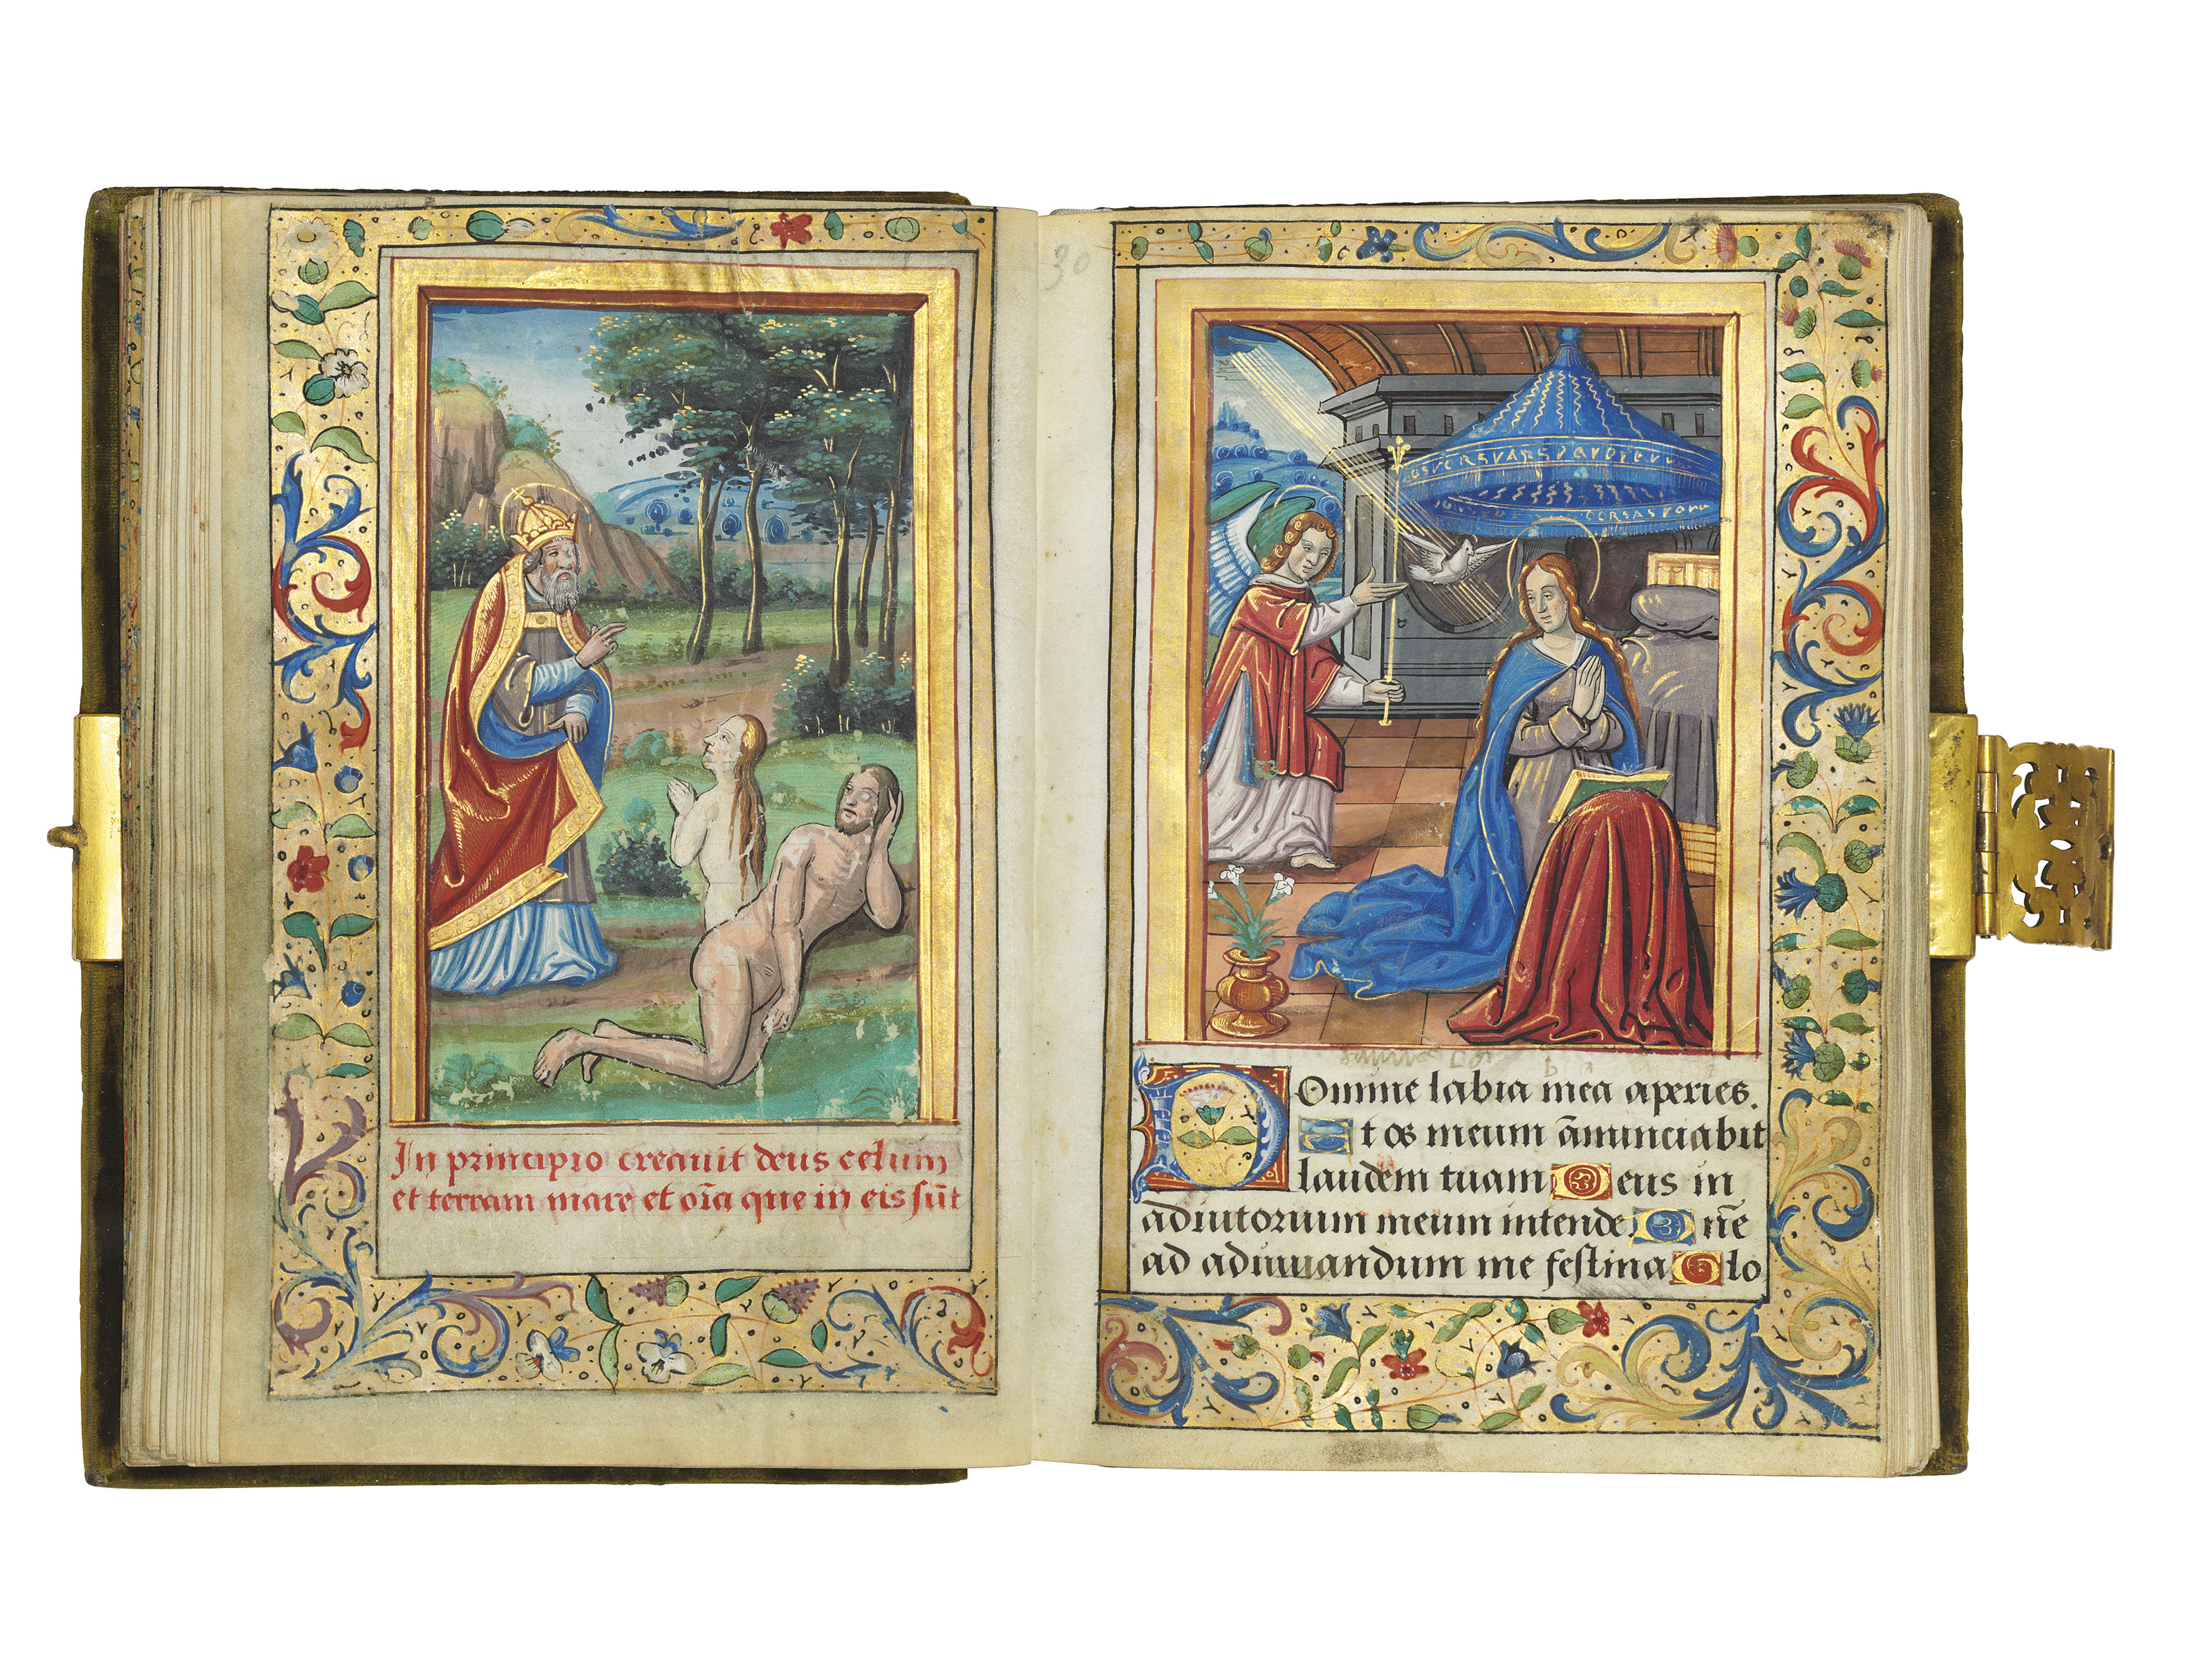 In principio creauit deus celum
et terram mare et oīa que in eis sūt
30
Domine labia mea aperies.
Et os meum ānunciabit
laudem tuam Deus in
adiutorium meum intende D nē
ad adiuuandum me festina Glo